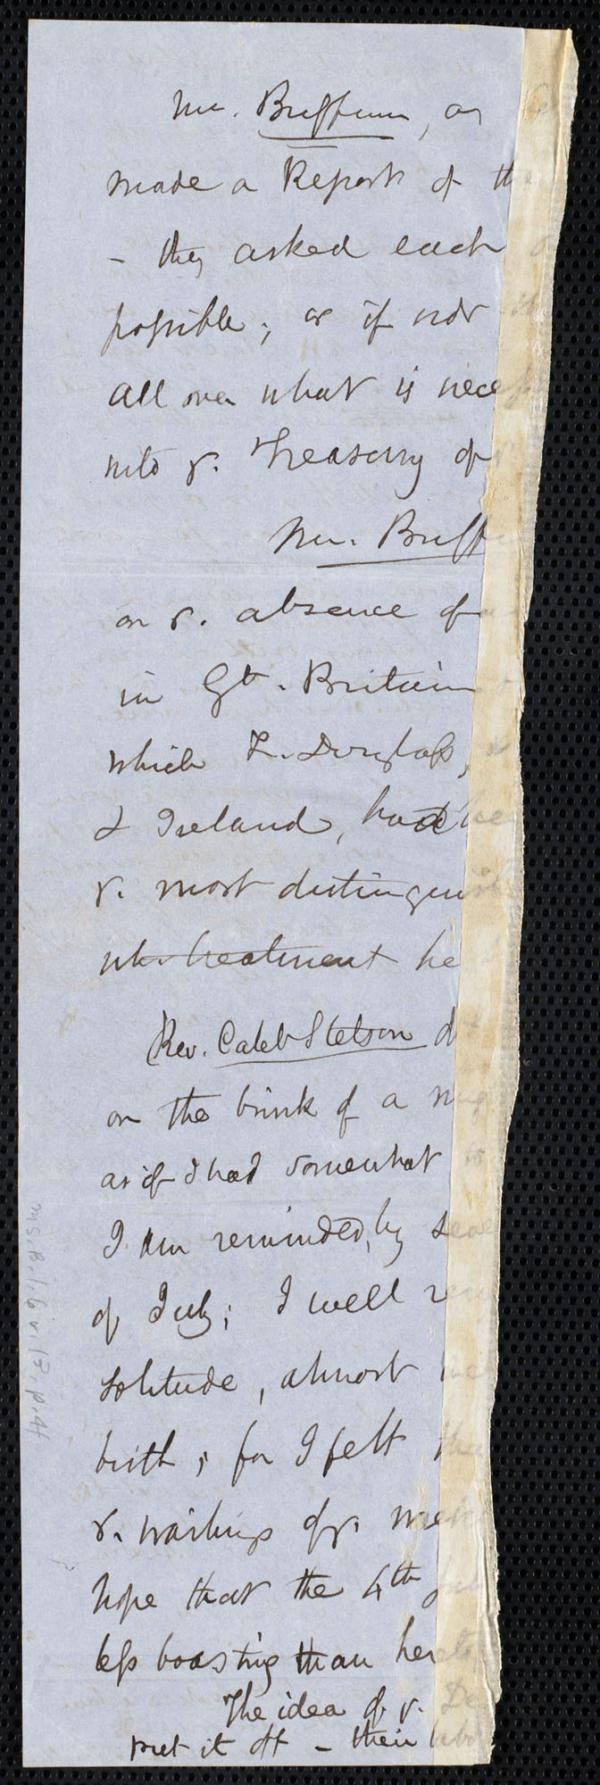 Mr. Buffum, as
made a Report of the
– they asked each
possible; or if not
all over what is nece
into y. Treasury of
Mr. Buff
on y. absence of
in Gt. Britain
which F. Douglass,
& Ireland, had
y. most distinguis
treatment he
Rev. Caleb Stetson
on the brink of a
as if I had somewhat
I am reminded, by
of July; I well
solitude, almost
birth; for I felt
y. wailings of y.
hope that the 4th
less boasting than her
The idea of y. De
put it off – their